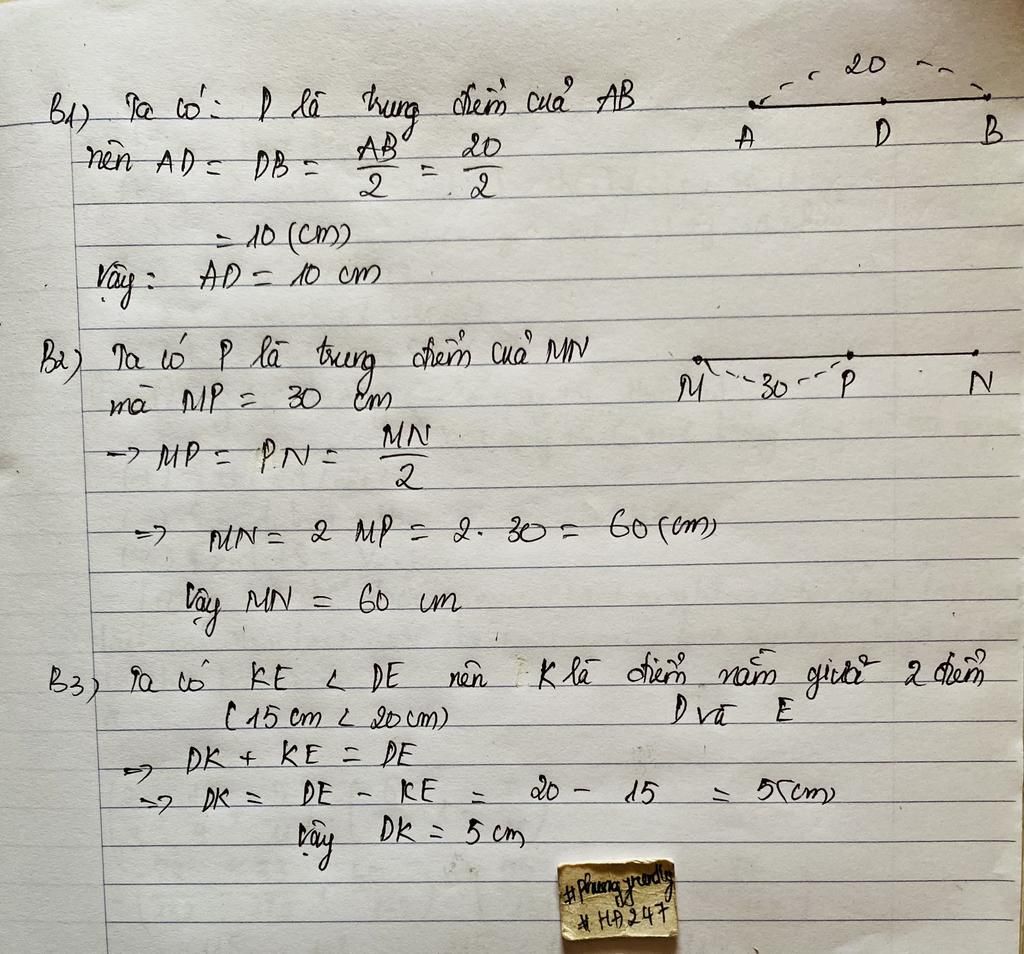 B1) Ta có: D là trung điểm của AB
nên AD = DB = AB/2 = 20/2
= 10 (cm)
Vậy: AD = 10 cm
20
A D B
B2) Ta có P là trung điểm của MN
mà MP = 30 cm
→ MP = PN = MN/2
=> MN = 2 MP = 2. 30 = 60 (cm)
Vậy MN = 60 cm
M 30 P N
B3) Ta có KE < DE nên K là điểm nằm giữa 2 điểm
(15 cm < 20 cm) D và E
=> DK + KE = DE
=> DK = DE - KE = 20 - 15 = 5 (cm)
Vậy DK = 5 cm
# HĐ247